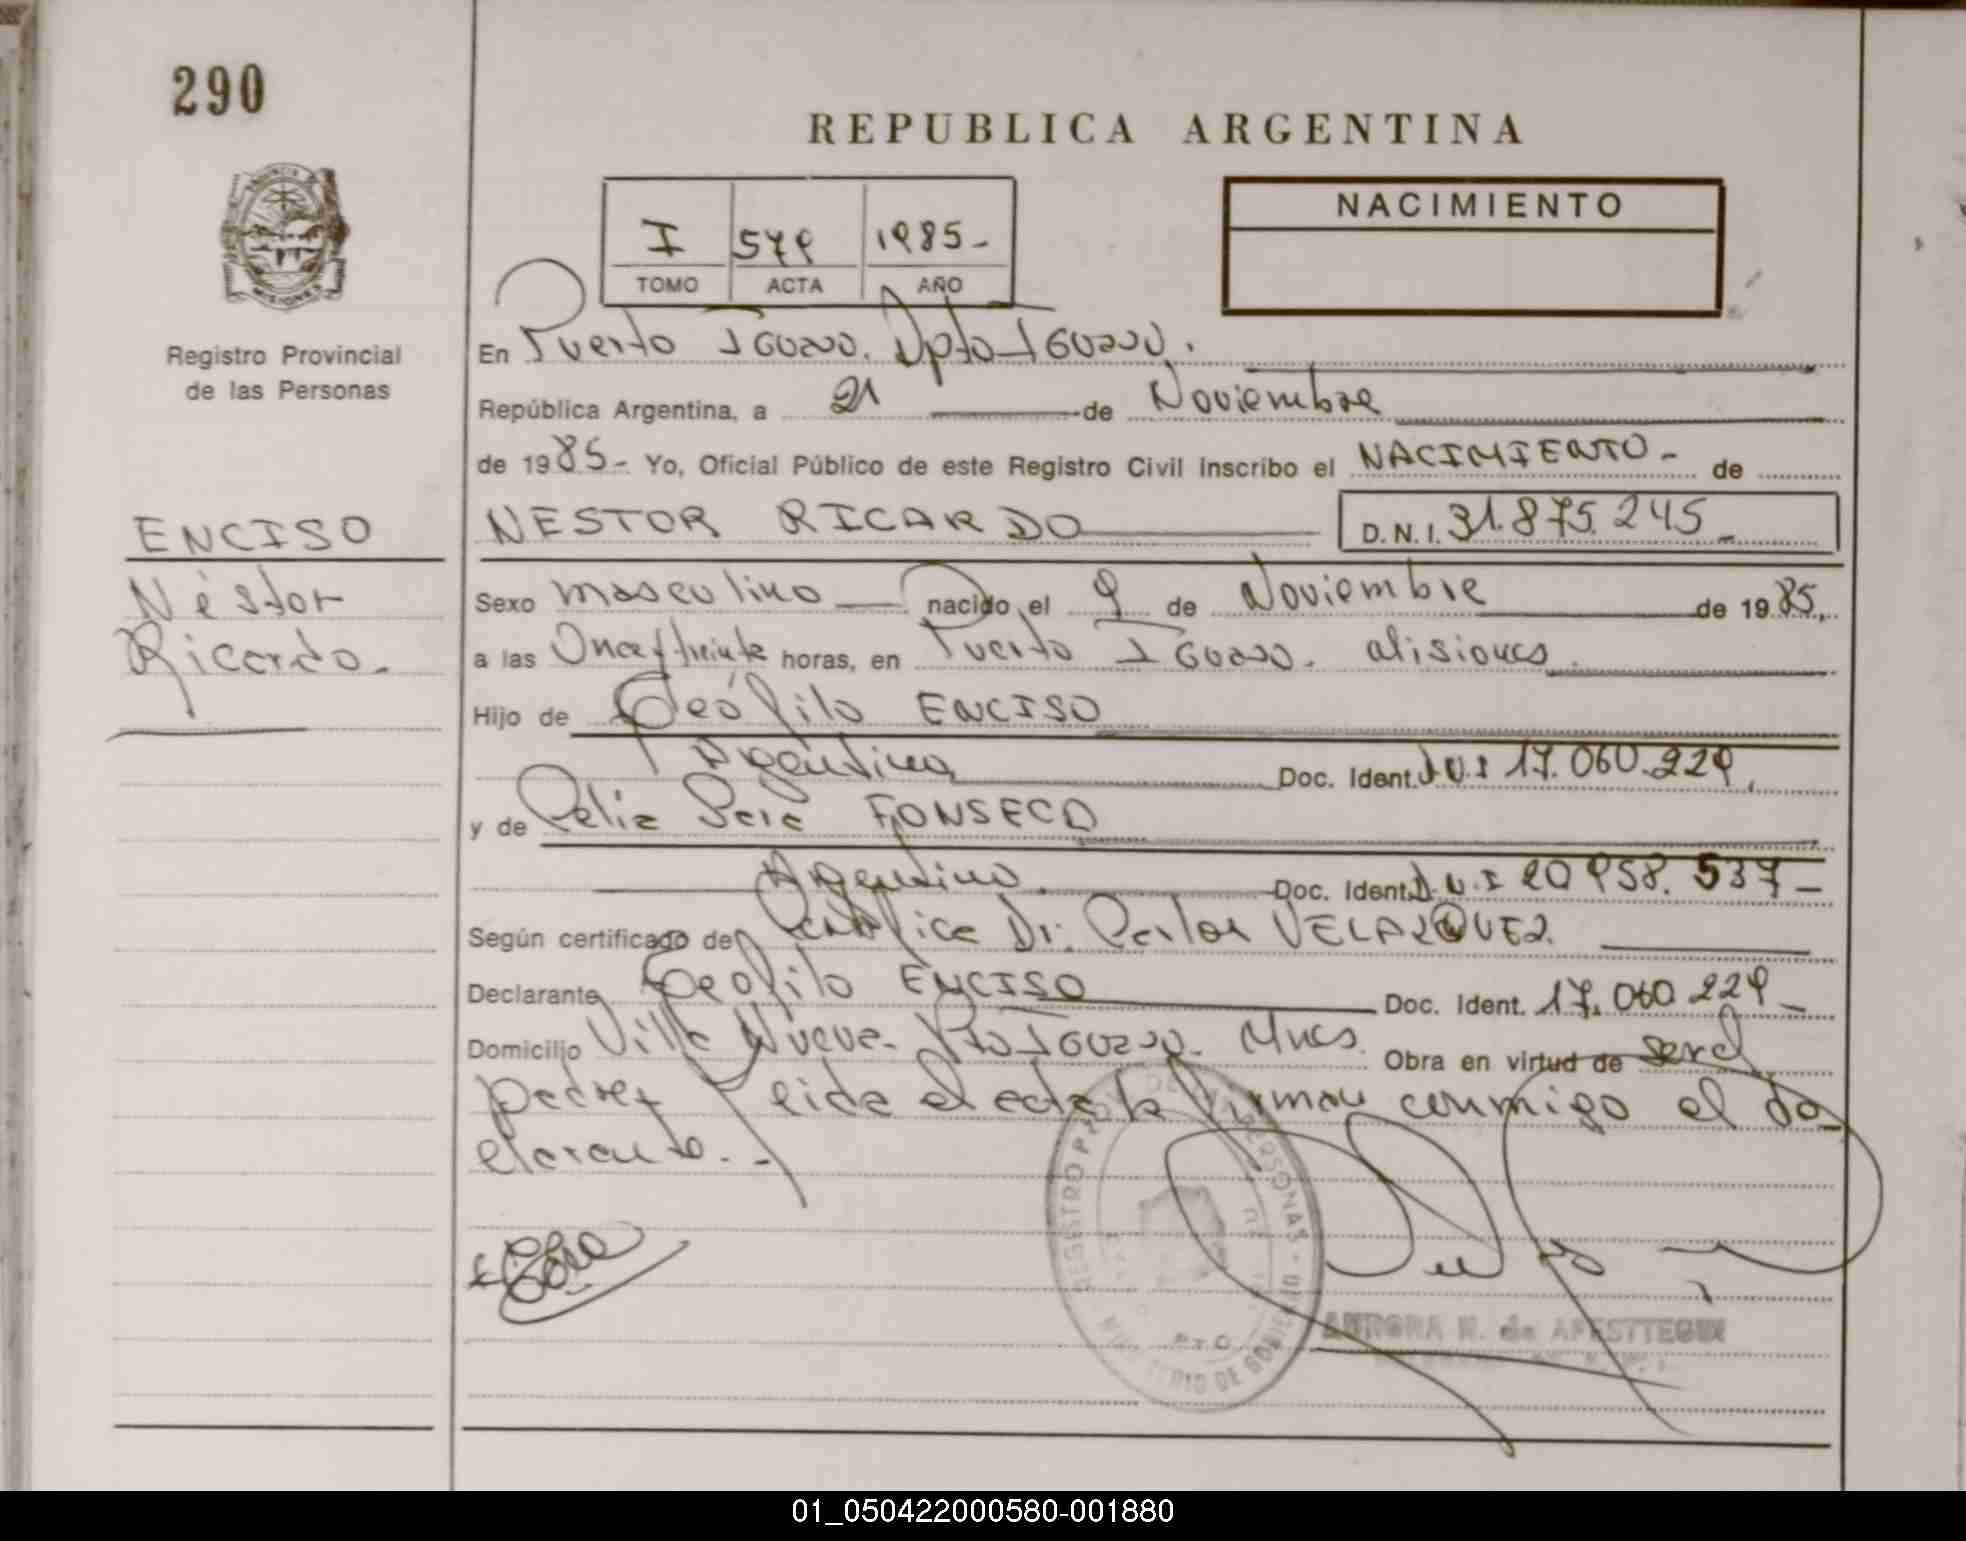 290
REPUBLICA ARGENTINA
NACIMIENTO
I 579 1985-
TOMO ACTA AÑO
PROVINCIA DE MISIONES
Registro Provincial
de las Personas
En Puerto Iguazú. Dpto Iguazú.
República Argentina, a 21 de Noviembre
de 1985- Yo, Oficial Público de este Registro Civil inscribo el NACIMIENTO- de
ENCISO
Néstor
Ricardo.
NESTOR RICARDO D.N.I. 31.875.245
Sexo masculino nacido el 9 de Noviembre de 1985,
a las Once y treinta horas, en Puerto Iguazú. Misiones.
Hijo de Teófilo ENCISO
Argentina Doc. Ident. D.N.I 17.060.229,
y de Celia FONSECA
Argentina. Doc. Ident. D.N.I 20.958.537-
Según certificado de Dr. Carlos VELAZQUEZ.
Declarante Teófilo ENCISO Doc. Ident. 17.060.229-
Domicilio Villa Nueva- Pto Iguazú- Mnes. Obra en virtud de ser el
padre, leida el acta la firman conmigo el de
clarante.-
REGISTRO DE LAS PERSONAS - MINISTERIO DE GOBIERNO
01_050422000580-001880